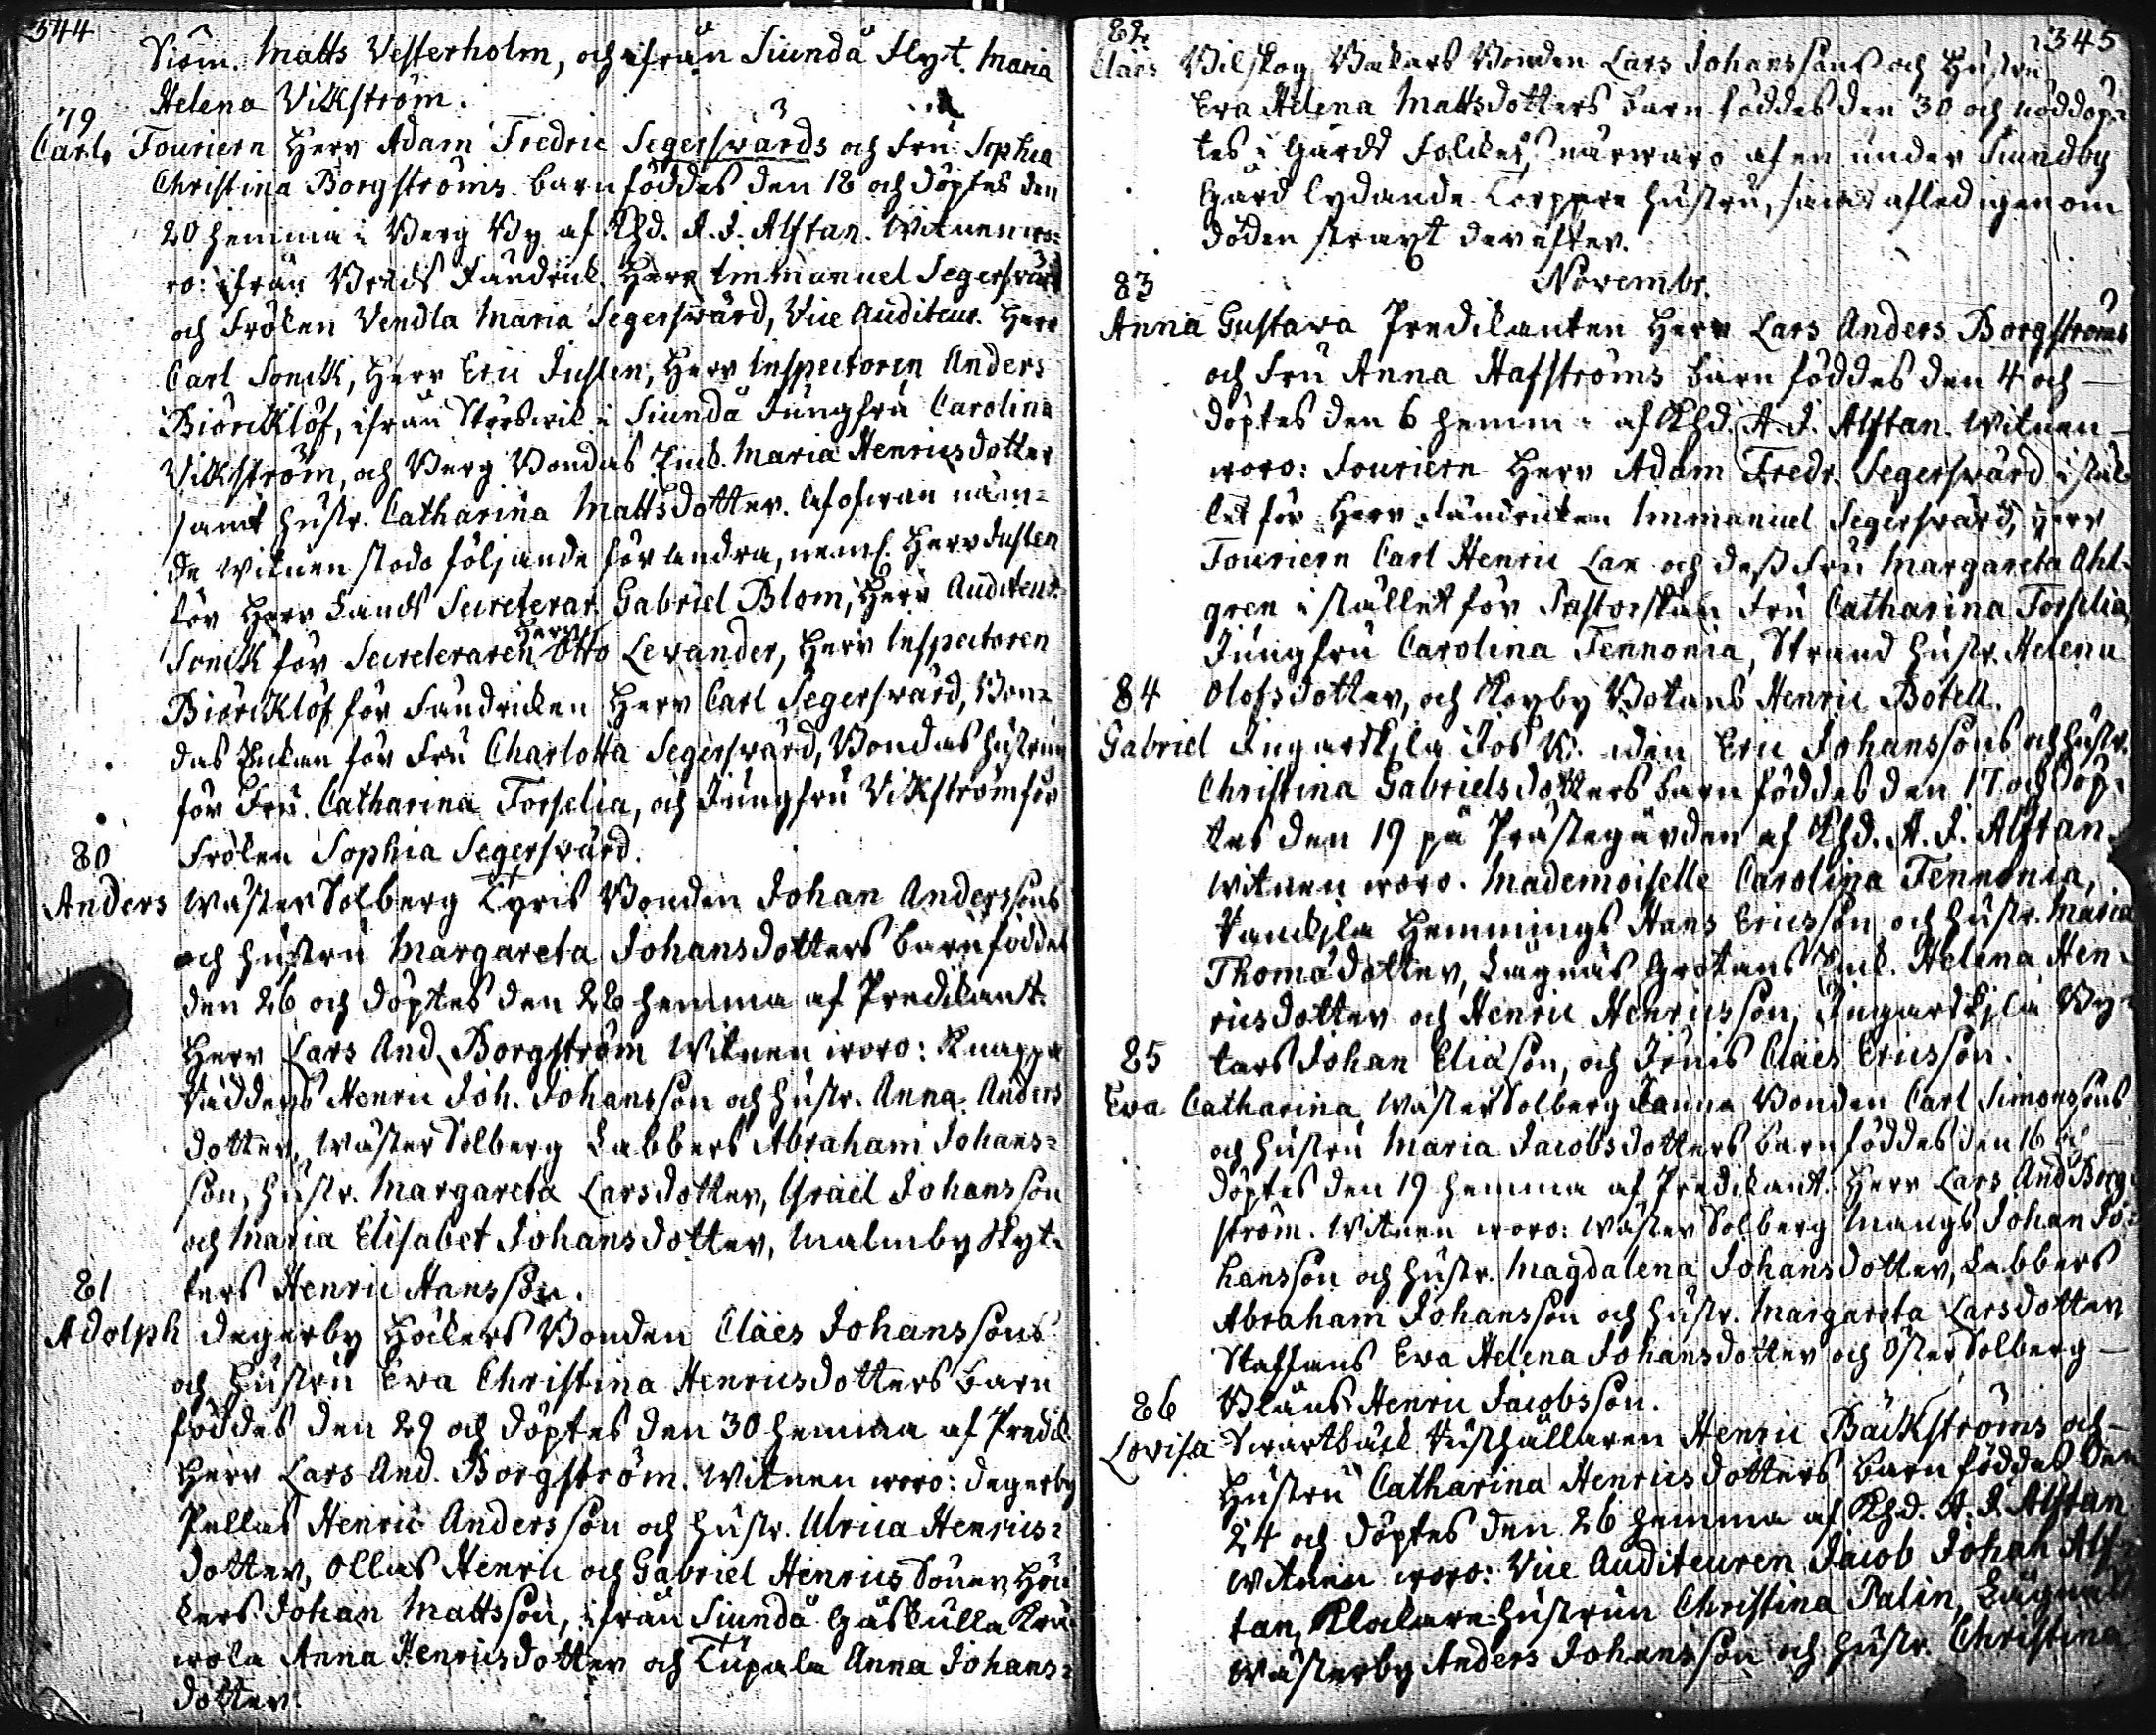 344
Siöm. Matts Vesterholm, och ifrån Siundå Flyt. Maria
Helena Vikström.
79
Carl, Fouriern Herr Adam Fredric Segersvärds och Fru Sophia
Christina Borgströms barn föddes den 18 och döptes den
20 hemma i Berg By af Khd. A. J. Alftan. Witnen wo=
ro: ifrån Fändrick. Herr Immanuel Segersvärd
och Frölen Vendla Maria Segersvärd, Vice Auditeur. Herr
Carl Sonck, Herr Eric Juslen, Herr Inspectoren Anders
Biörcklöf, ifrån Störswik i Siundå Jungfru Carolina
Vikström, och Berg Bondas Enck. Maria Henricsdotter
samt hustr. Catharina Mattsdotter. Af ofwan näm=
de Witnen stodo följande för andra, neml. Herr Juslen
för Herr Lands Secreterar. Gabriel Blom, Herr Auditeur.
Sonck för Secreteraren Herr Otto Levander, Herr Inspectoren
Biörcklöf för Fändricken Herr Carl Segersvärd, Bon=
das Enckan för Fru Charlotta Segersvärd, Bondas hustrun
för Fru Catharina Forselia, och Jungfru Vikström för
Frölen Sophia Segersvärd.
80
Anders Wäster Solberg Tyris Bonden Johan Anderssons
och hustru Margareta Johansdotters barn föddes
den 26 och döptes den 28 hemma af Predikant.
Herr Lars And. Borgström Witnen woro: Knapp
Henric Joh. Johansson och hustr. Anna Anders
dotter, Wäster Solberg Labbers Abraham Johans=
son, hustr. Margareta Larsdotter, Israël Johansson
och Maria Elisabet Johansdotter, Malmby Skyt=
ters Henric Hansson.
81
Adolph Degerby Höckers Bonden Claës Johanssons
och Hustru Eva Christina Henricsdotters barn
föddes den 29 och döptes den 30 hemma af Predik.
Herr Lars And. Borgström. Witnen woro: Degerby
Pellas Henric Andersson och hustr. Ulrica Henrics=
dotter, Ollas Henric och Gabriel Henrics Söner, Höc=
kers Johan Mattsson, ifrån Siundå Gåsculla Krä=
wola Anna Henricsdotter och Tupala Anna Johans=
dotter.
345
82
Claës Vilskog Backars Bonden Lars Johanssons och Hustru
Eva Helena Mattsdotters barn föddes den 30 och nöddöp=
tes i Gårds Folckets närwaro af en under Siundby
Gård lydande Torppare hustru, samt afled igenom
döden straxt derefter.
Novembr.
83
Anna Gustava Predikanten Herr Lars Anders Borgströms
och Fru Anna Hafströms barn föddes den 4 och
döptes den 6 hemma af Khd. A. J. Alftan. Witnen
woro: Fouriern Herr Adam Fredr. Segersvärd i stäl=
let för Herr Fändricken Immanuel Segersvärd, Herr
Fouriern Carl Henric Lax och dess Fru Margareta Ahl=
gren i stället för Pastorskan Fru Catharina Forselia,
Jungfru Carolina Fennonia, Strand hustr. Helena
Olofsdotter, och Kopby Botans Henric Botell.
84
Gabriel Ingarskila Jos Eric Johanssons och hustr.
Christina Gabrielsdotters barn föddes den 17 och döp=
tes den 19 på Prästegården af Khd. A. J. Alftan.
Witnen woro. Mademoiselle Carolina Fennonia,
Hemmings Hans Ericsson och hustr. Maria
Thomædotter, Lägnäs Grötans Enck. Helena Hen=
ricsdotter och Henric Henricsson, Ingarskila By=
tars Johan Eliäson, och Jönis Claës Ericsson.
85
Eva Catharina Wäster Solberg Janne Bonden Carl Simonssons
och hustru Maria Jacobsdotters barn föddes den 16 och
döptes den 19 hemma af Predikant. Herr Lars And Borg=
ström. Witnen woro: Wäster Solberg Mangs Johan Jo=
hansson och hustr. Magdalena Johansdotter, Labbers
Abraham Johansson och hustr. Margareta Larsdotter,
Staffans Eva Helena Johansdotter och Öster Solberg
Blåus Henric Jacobsson.
86
Lovisa Swartbäck Hushållaren Henric Bäckströms och
Hustru Catharina Henricsdotters barn föddes den
24 och döptes den 26 hemma af Khd. A. J. Alftan
Witnen woro: Vice Auditeuren Jacob Johan Alf=
tan, Klockare-hustrun Christina Palin, Lägnäs
Wästerby Anders Johansson och hustr. Christina